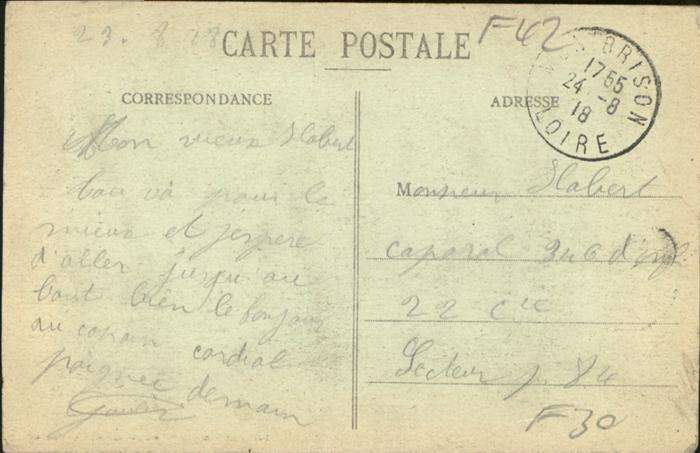 23. 8 18
CARTE POSTALE
F42
MONTBRISON
1765
24 -8
18
LOIRE
CORRESPONDANCE
ADRESSE
Mon vieux Habert
tou va pour le
mieux et jespere
d'aller jusqu au
bout bien le bonjour
au copain cordial
poignée demain
Monsieur Habert
caporal 346 d'inf
22 Cie
Secteur p. 84
F30